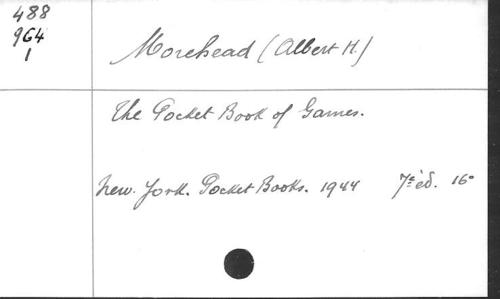 488
964
1
Morehead (Albert H.)
The Pocket Book of Games.
New. York. Pocket Books. 1944 7e éd. 16°